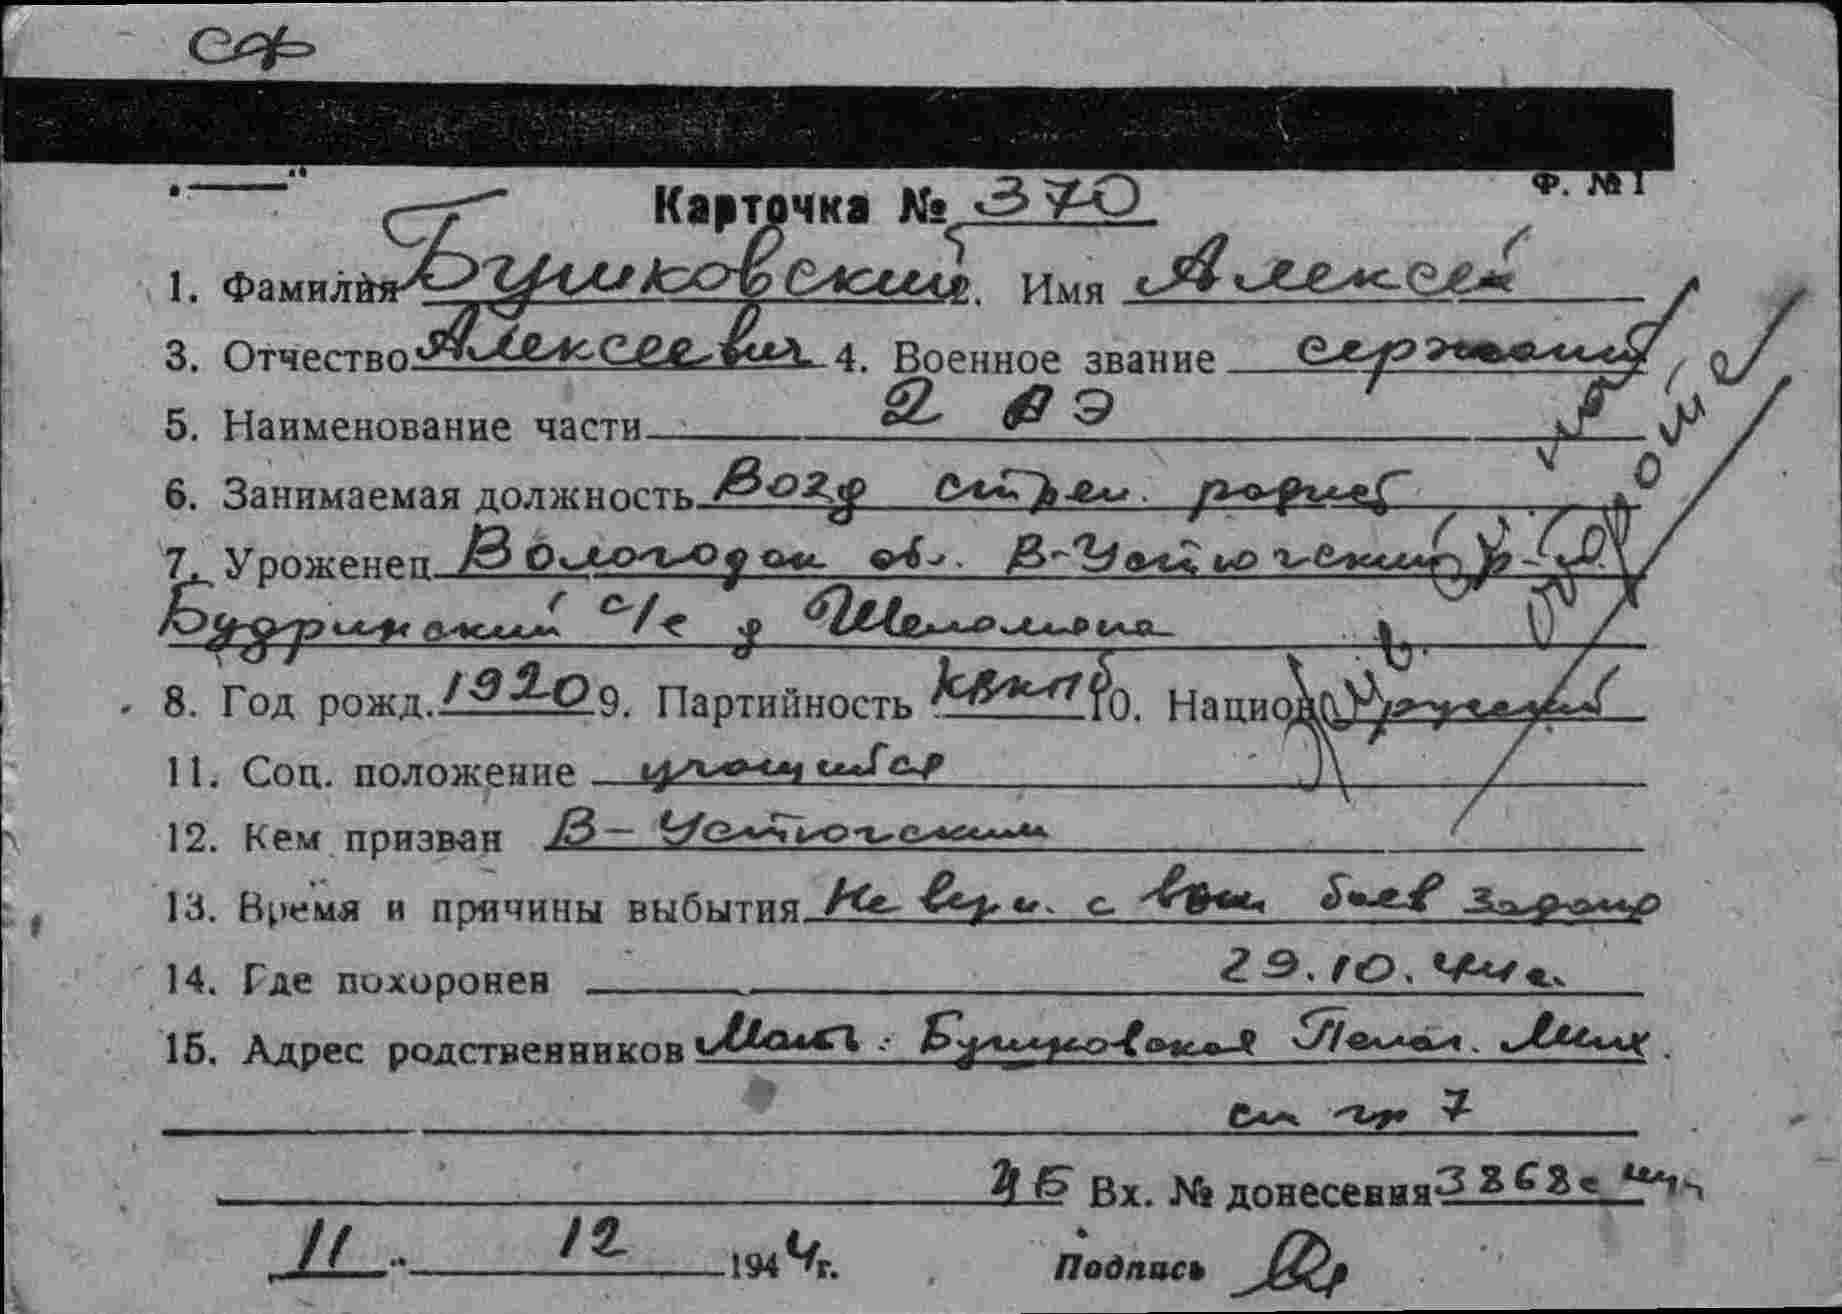 Ф. № 1
Карточка № 370
1. Фамилия Бушковский. Имя Алексей
3. Отчество Алексеевич 4. Военное звание сержант
5. Наименование части 2 ВЭ
6. Занимаемая должность Возд стрел. радист
7. Уроженец Вологодск об. В-Устюгский р-н
Будринский с/с д
8. Год рожд. 1920 9. Партийность КВКПб 10. Национ русский
11. Соц. положение учащийся
12. Кем призван В-Устюгским
13. Время и причины выбытия Не верн. с выш боев задания
14. Где похоронен 29.10.44 г.
15. Адрес родственников Мать: Бушковская Пелаг. Мих.
см гр 7
Вх. № донесения 3868с
11 " 12 1944 г. Подпись